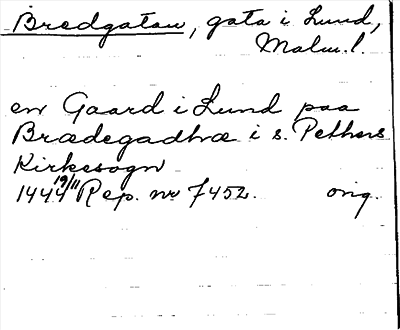 Bredgatan, gata i Lund,
Malm. l.
en Gaard i Lund paa
Brædegadhæ i s. Pethers
Kirkesogn
1444 19/11 Rep. nr 7452. orig.